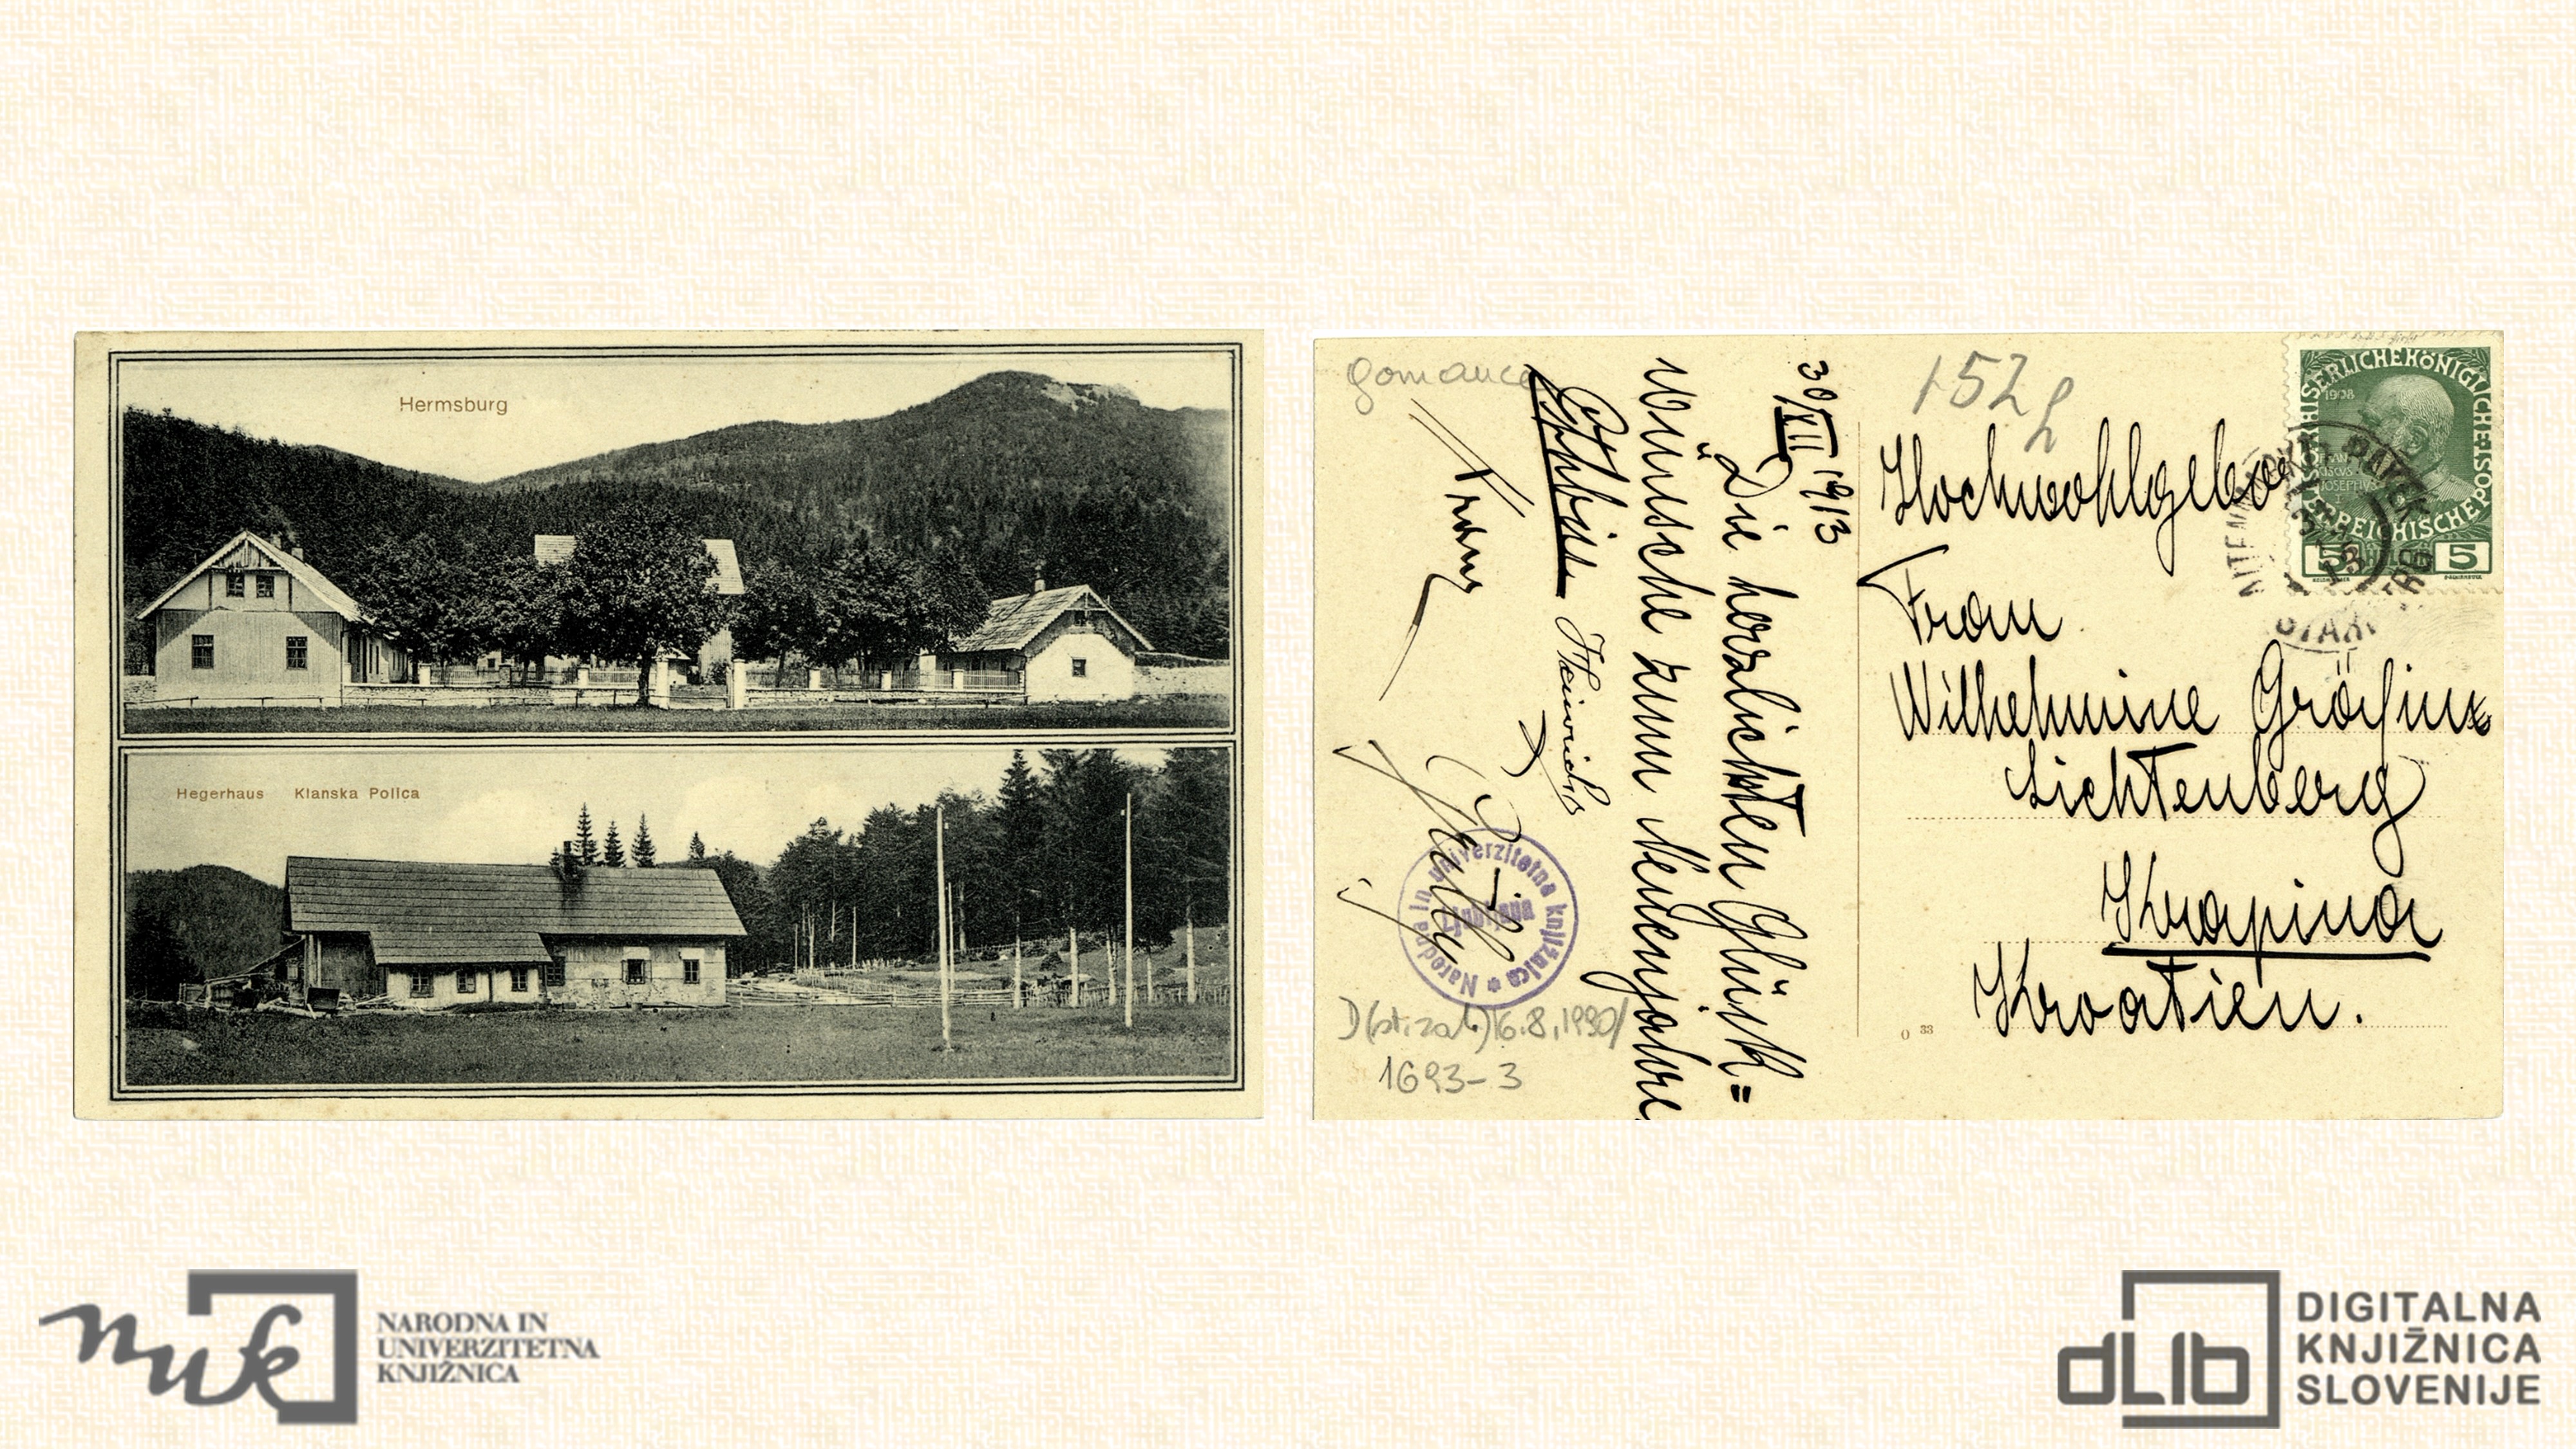 Hermsburg
Hegerhaus Klanska Polica
Gomance
152
30/XII 1913
Die herzlichsten Glück=
wünsche zum Neuenjahre
Heinrich
Narodna in univerzitetna knjižnica *
Ljubljana
16.8.1990/
1693-3
KAISERLICHEKÖNIGLICHE
ÖSTERREICHISCHEPOST
1908
5 5
Hochwohlgebor
Frau
Wilhelmine Gräfin
Lichtenberg
Krapina
Kroatien.
O 33
nuk
NARODNA IN
UNIVERZITETNA
KNJIŽNICA
dLib
DIGITALNA
KNJIŽNICA
SLOVENIJE